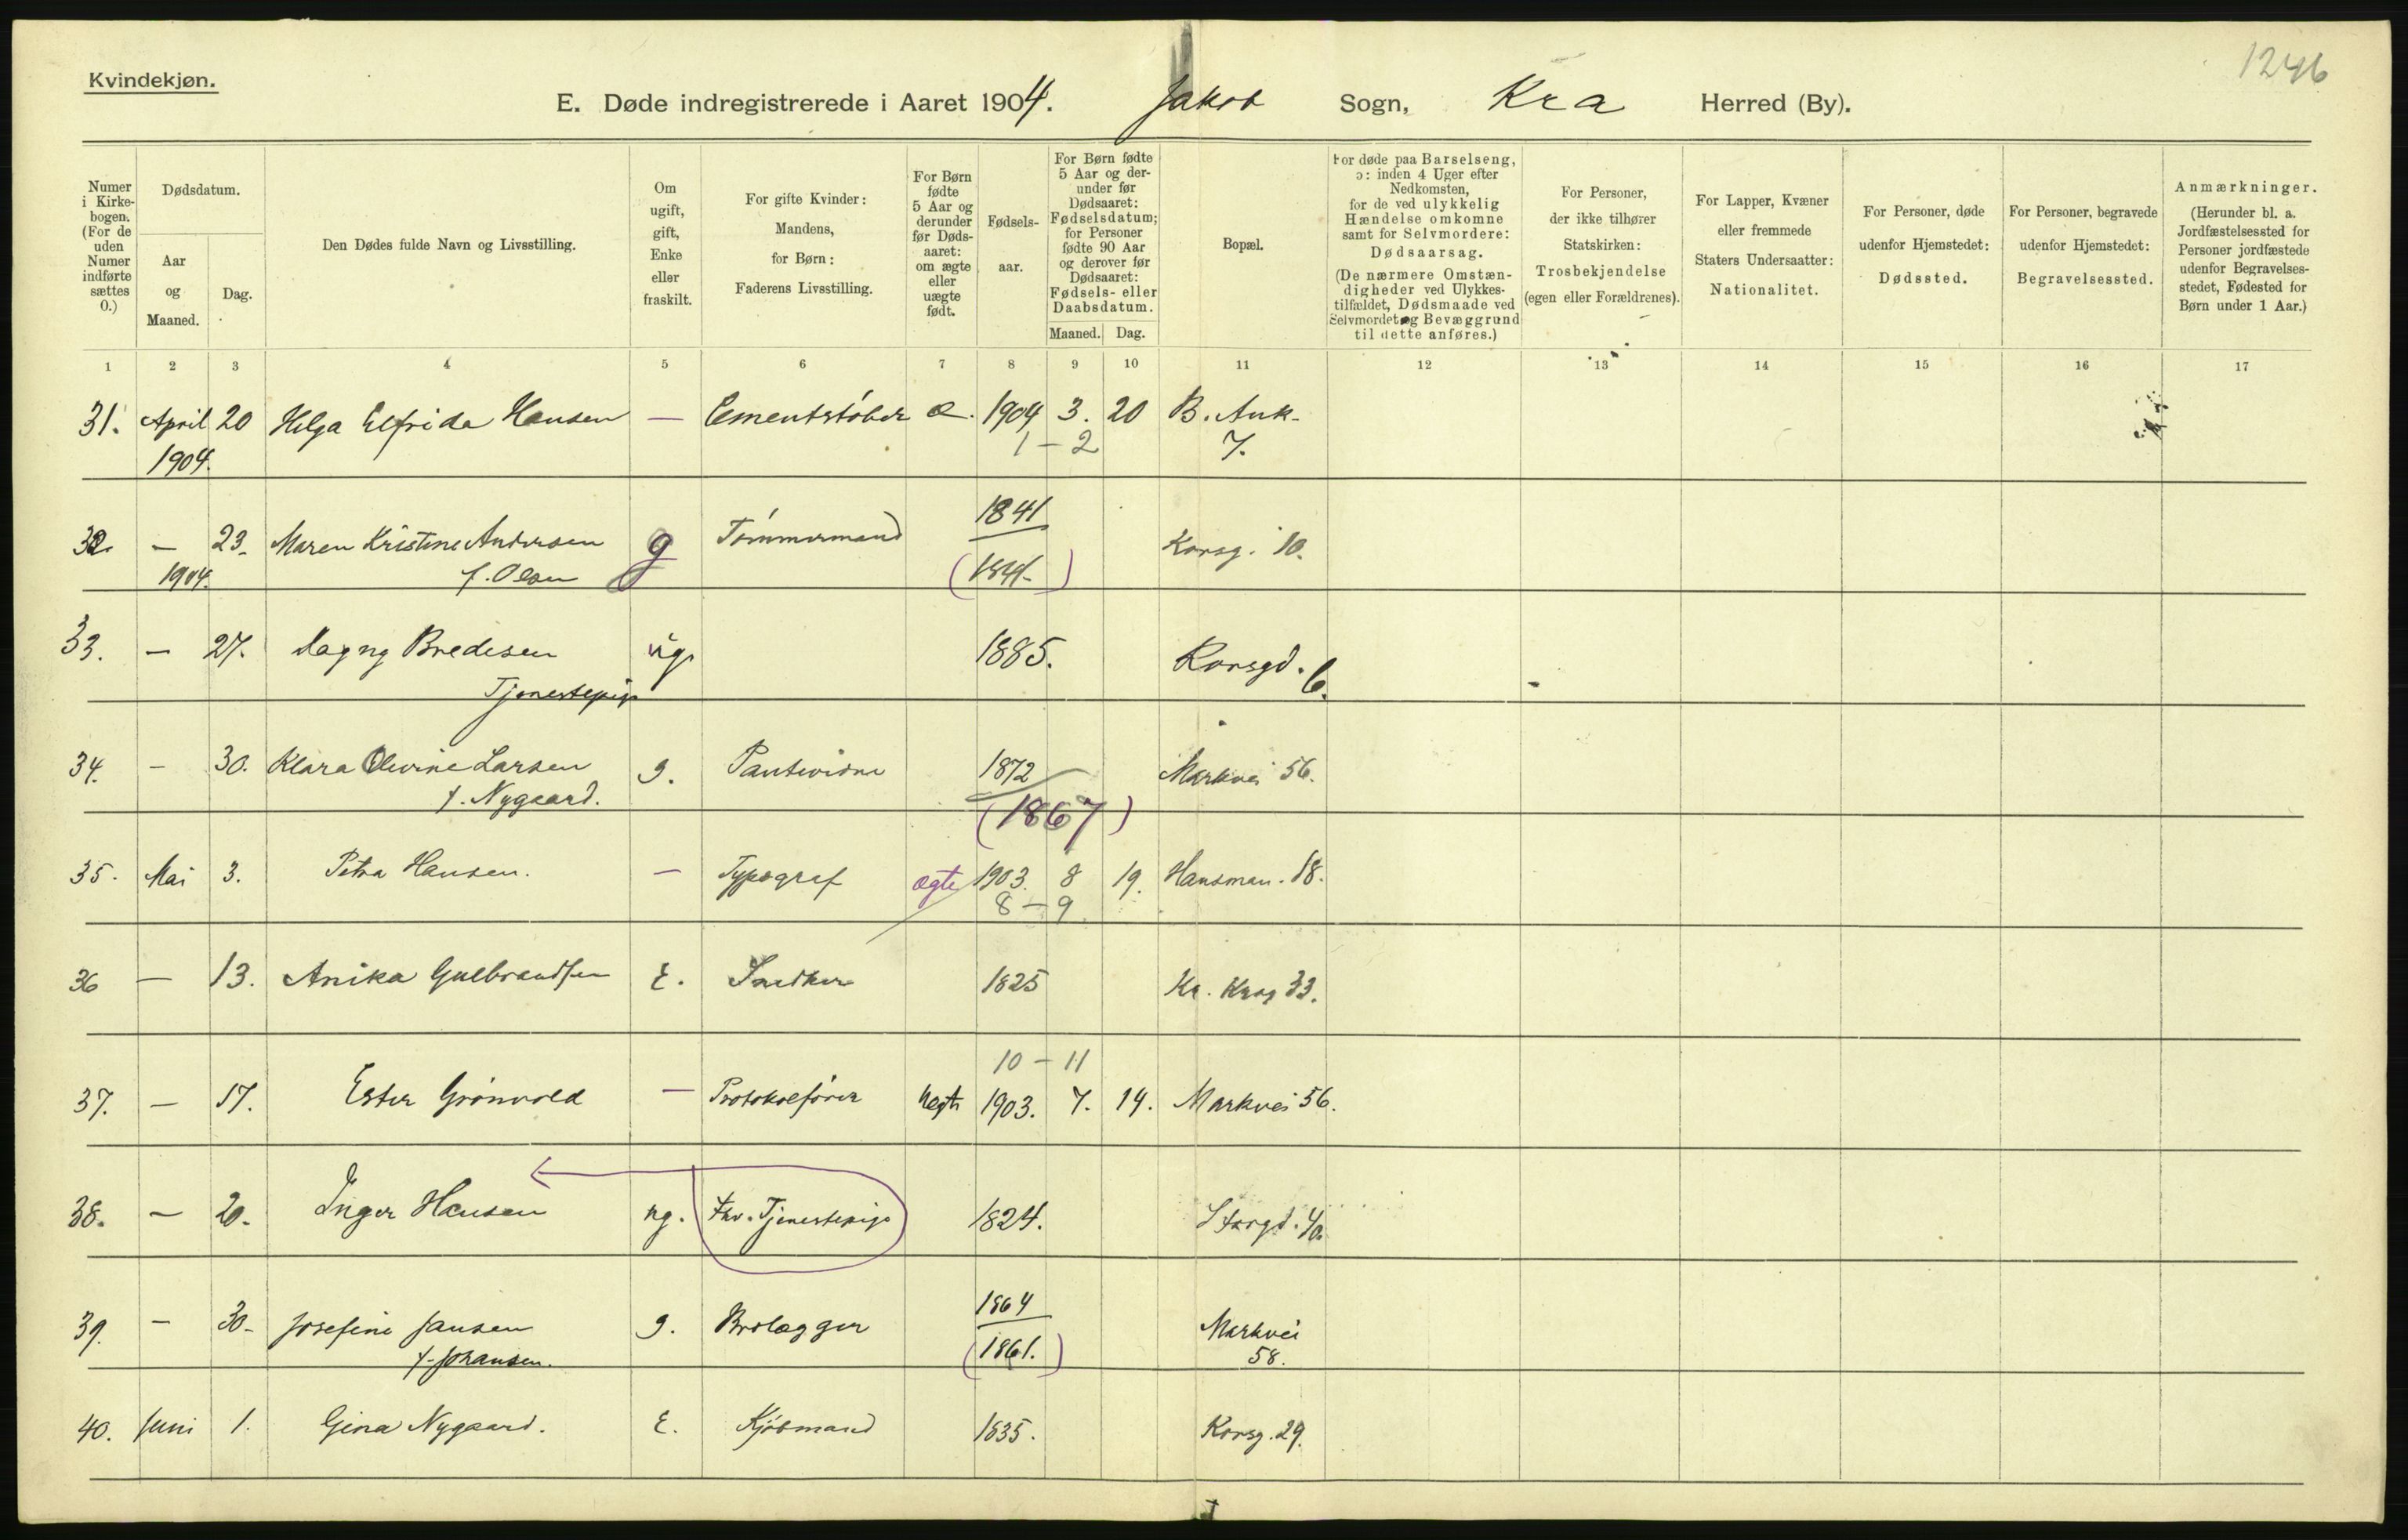 1246
Kvindekjøn.
E. Døde indregistrerede i Aaret 1904. Jakob Sogn, Kra Herred (By).
Numer i Kirke-bogen. (For de uden Numer indførte sættes 0.)
Dødsdatum.
Aar og Maaned.
Dag.
Den Dødes fulde Navn og Livsstilling.
Om ugift, gift, Enke eller fraskilt.
For gifte Kvinder: Mandens, for Børn: Faderens Livsstilling.
For Børn fødte 5 Aar og derunder før Døds-aaret: om ægte eller uægte født.
Fødsels-aar.
For Børn fødte 5 Aar og der-under før Dødsaaret: Fødselsdatum; for Personer fødte 90 Aar og derover før Dødsaaret: Fødsels- eller Daabsdatum.
Maaned. Dag.
Bopæl.
For døde paa Barselseng, ɔ: inden 4 Uger efter Nedkomsten, for de ved ulykkelig Hændelse omkomne samt for Selvmordere: Dødsaarsag. (De nærmere Omstæn-digheder ved Ulykkes-tilfældet, Dødsmaade ved Selvmordet og Bevæggrund til dette anføres.)
For Personer, der ikke tilhører Statskirken: Trosbekjendelse (egen eller Forældrenes).
For Lapper, Kvæner eller fremmede Staters Undersaatter: Nationalitet.
For Personer, døde udenfor Hjemstedet: Dødssted.
For Personer, begravede udenfor Hjemstedet: Begravelsessted.
Anmærkninger. (Herunder bl. a. Jordfæstelsessted for Personer jordfæstede udenfor Begravelses-stedet, Fødested for Børn under 1 Aar.)
1 2 3 4 5 6 7 8 9 10 11 12 13 14 15 16 17
31. April 20 Helga Elfrida Hansen — Cementstøber æ. 1904 3. 20 B. Ank.
1904. 1 – 2 7.
1841
32. — 23. Maren Kristine Andersen g Tømmermand Korsg. 10.
1904. f. Olsen (1841.)
33. — 27. Dagny Bredesen ug. 1885. Korsgd. 6.
Tjenestepige
34. — 30. Klara Olevine Larsen g. 1872 Markvei 56.
f. Nygaard. (1867)
35. Mai 3. Petra Hansen. — Typograf ægte 1903. 8 19. Hausman. 18.
8 – 9
36 — 13. Anika Gulbrandsen E. Snedker 1825 Kr. Krog 33.
10 – 11
37. — 17. Ester Grönvold — Protokolfører uegte 1903. 7. 14. Markvei 56.
38. — 20. Inger Hansen ug. fhv. Tjenestepige 1824. Storgd. 40.
1864
39. — 30. Josefine Jansen g. Brolægger Markvei
f. Johansen. (1861.) 58.
40. Juni 1. Gina Nygaard. E. Kjøbmand 1835. Korsg. 29.